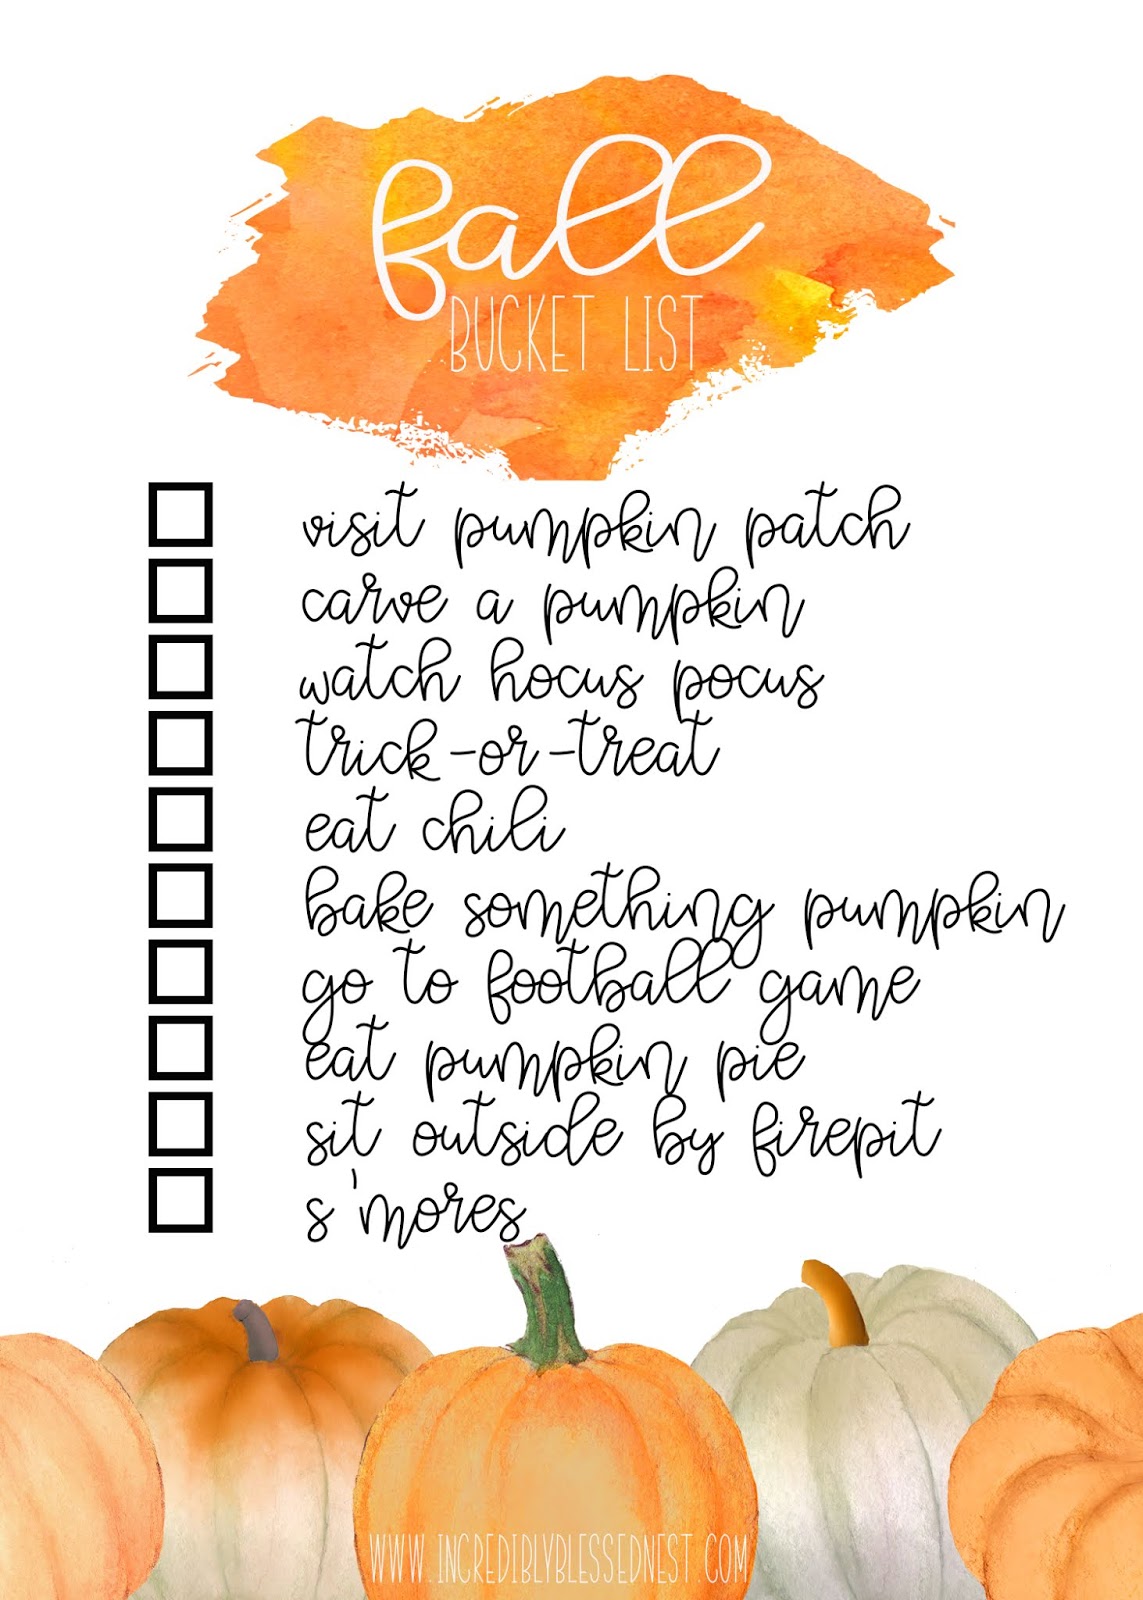 fall
BUCKET LIST
visit pumpkin patch
carve a pumpkin
watch hocus pocus
trick-or-treat
eat chili
bake something pumpkin
go to football game
eat pumpkin pie
sit outside by firepit
s'mores
WWW.INCREDIBLYBLESSEDNEST.COM